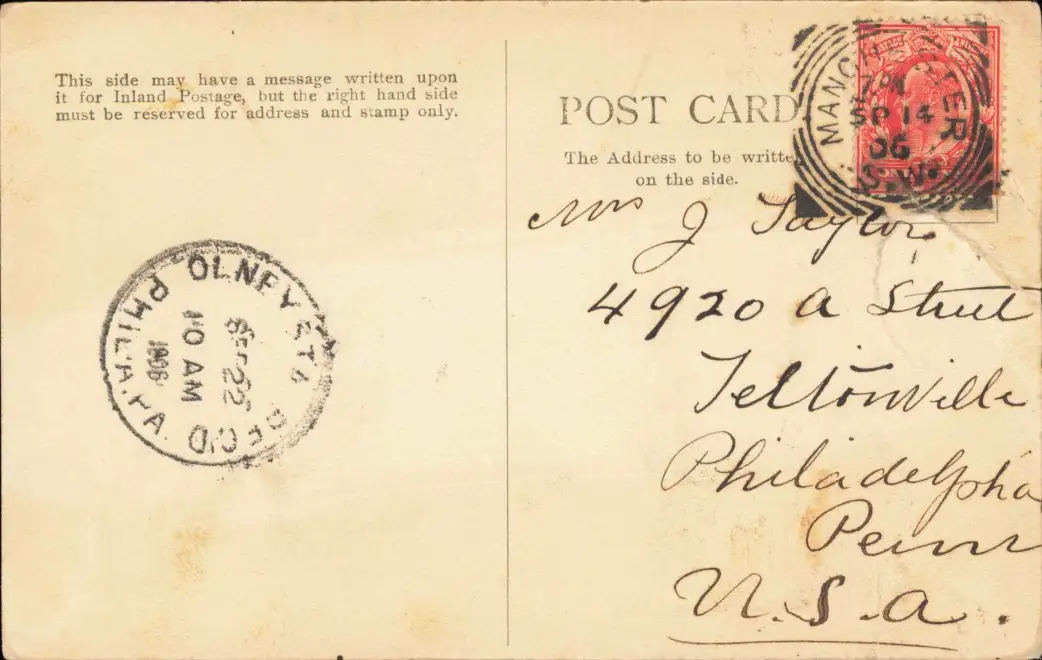 This side may have a message written upon
it for Inland Postage, but the right hand side
must be reserved for address and stamp only.
POST CARD
The Address to be written
on the side.
MANCHESTER
7 PM
SP 14
06
S.W.
Mrs J Taylor
4920 A Street
Feltonville
Philadelphia
Penn
U.S.A.
OLNEY STA
SEP 22
10 AM
1906
REC'D
PHIL'A. PA.